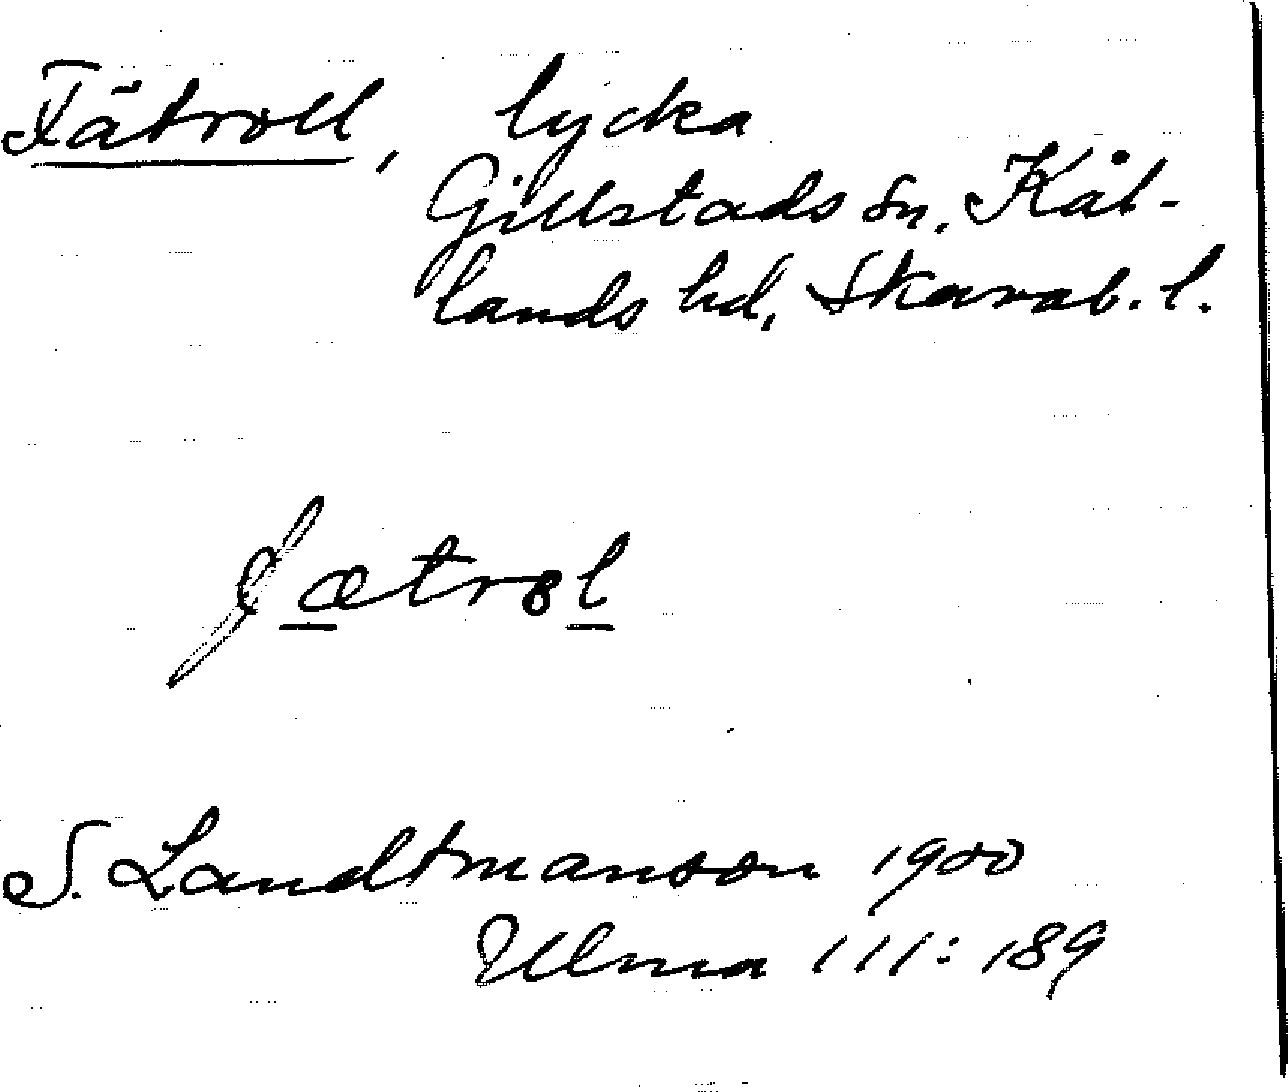 Fätroll, lycka
Gillstads sn, Kål-
lands hd, Skarab. l.
fætrol
S. Landtmanson 1900
Ulma 111: 189